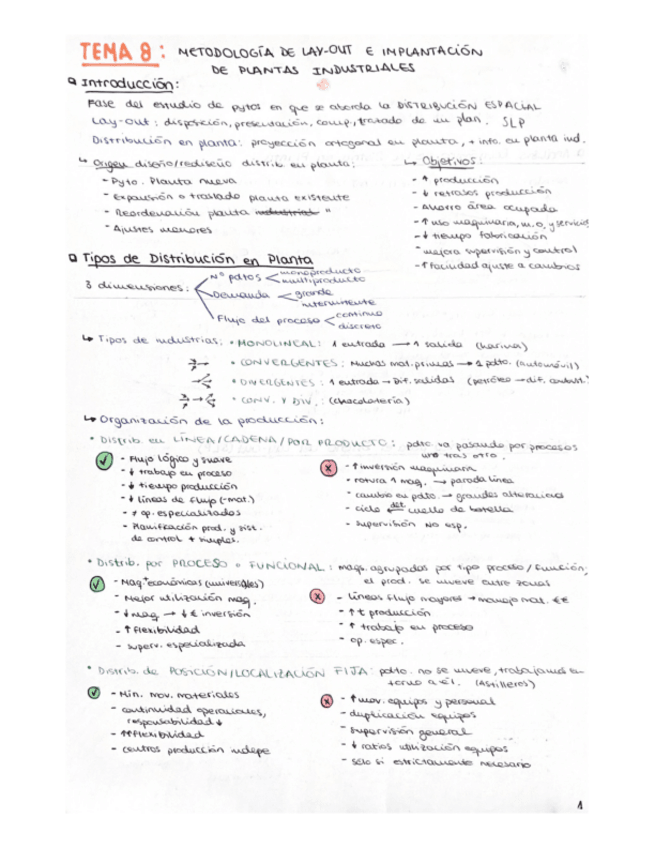 TEMA 8: METODOLOGÍA DE LAY-OUT E IMPLANTACIÓN
DE PLANTAS INDUSTRIALES
Introducción:
Fase del estudio de pytos en que se aborda la DISTRIBUCIÓN ESPACIAL
Lay-out: disposición, presentación, comp, trazado de un plan. SLP
Distribución en planta: proyección ortogonal en planta, + info. en planta ind.
↳ Origen diseño/rediseño distrib. en planta:
- Pyto. Planta nueva
- Expansión o traslado planta existente
- Reordenación planta industrial "
- Ajustes menores
↳ Objetivos:
- ↑ producción
- ↓ retrasos producción
- Ahorro área ocupada
- ↑ uso maquinaria, m.o, y servicio
- ↓ tiempo fabricación
- mejora supervisión y control
- ↑ facilidad ajuste a cambios
Tipos de Distribución en Planta
3 dimensiones:
Nº pdtos < monoproducto
multiproducto
Demanda < grande
intermitente
Flujo del proceso < continuo
discreto
↳ Tipos de industrias: • MONOLINEAL: 1 entrada → 1 salida (harina)
• CONVERGENTES: Muchas mat. primas → 1 pdto. (automóvil)
• DIVERGENTES: 1 entrada → Dif. salidas (petróleo → dif. combust.)
• CONV. Y DIV.: (chocolatería)
↳ Organización de la producción:
• Distrib. en LÍNEA/CADENA/POR PRODUCTO: pdto. va pasando por procesos
uno tras otro.
- Flujo lógico y suave
- ↓ trabajo en proceso
- ↓ tiempo producción
- ↓ líneas de flujo (-mat.)
- ≠ op. especializados
- Planificación prod. y sist.
de control + simples.
- ↑ inversión maquinaria
- rotura 1 maq. → parada línea
- cambio en pdto. → grandes alteraciones
- ciclo det cuello de botella
- supervisión no esp.
• Distrib. por PROCESO o FUNCIONAL: maqs. agrupadas por tipo proceso/función;
el prod. se mueve entre zonas
- Maq. + económicas (universales)
- Mejor utilización maq.
- ↓ maq → ↓ € inversión
- ↑ flexibilidad
- superv. especializada
- líneas flujo mayores → manejo mat. €€
- ↑ t producción
- ↑ trabajo en proceso
- op. espec.
• Distrib. de POSICIÓN/LOCALIZACIÓN FIJA: pdto. no se mueve, trabajamos en
torno a él. (Astilleros)
- Min. mov. materiales
- continuidad operaciones,
responsabilidad ↓
- ↑↑ flexibilidad
- centros producción indepe
- ↑ mov. equipos y personal
- duplicación equipos
- supervisión general
- ↓ ratios utilización equipos
- sólo si estrictamente necesario
1